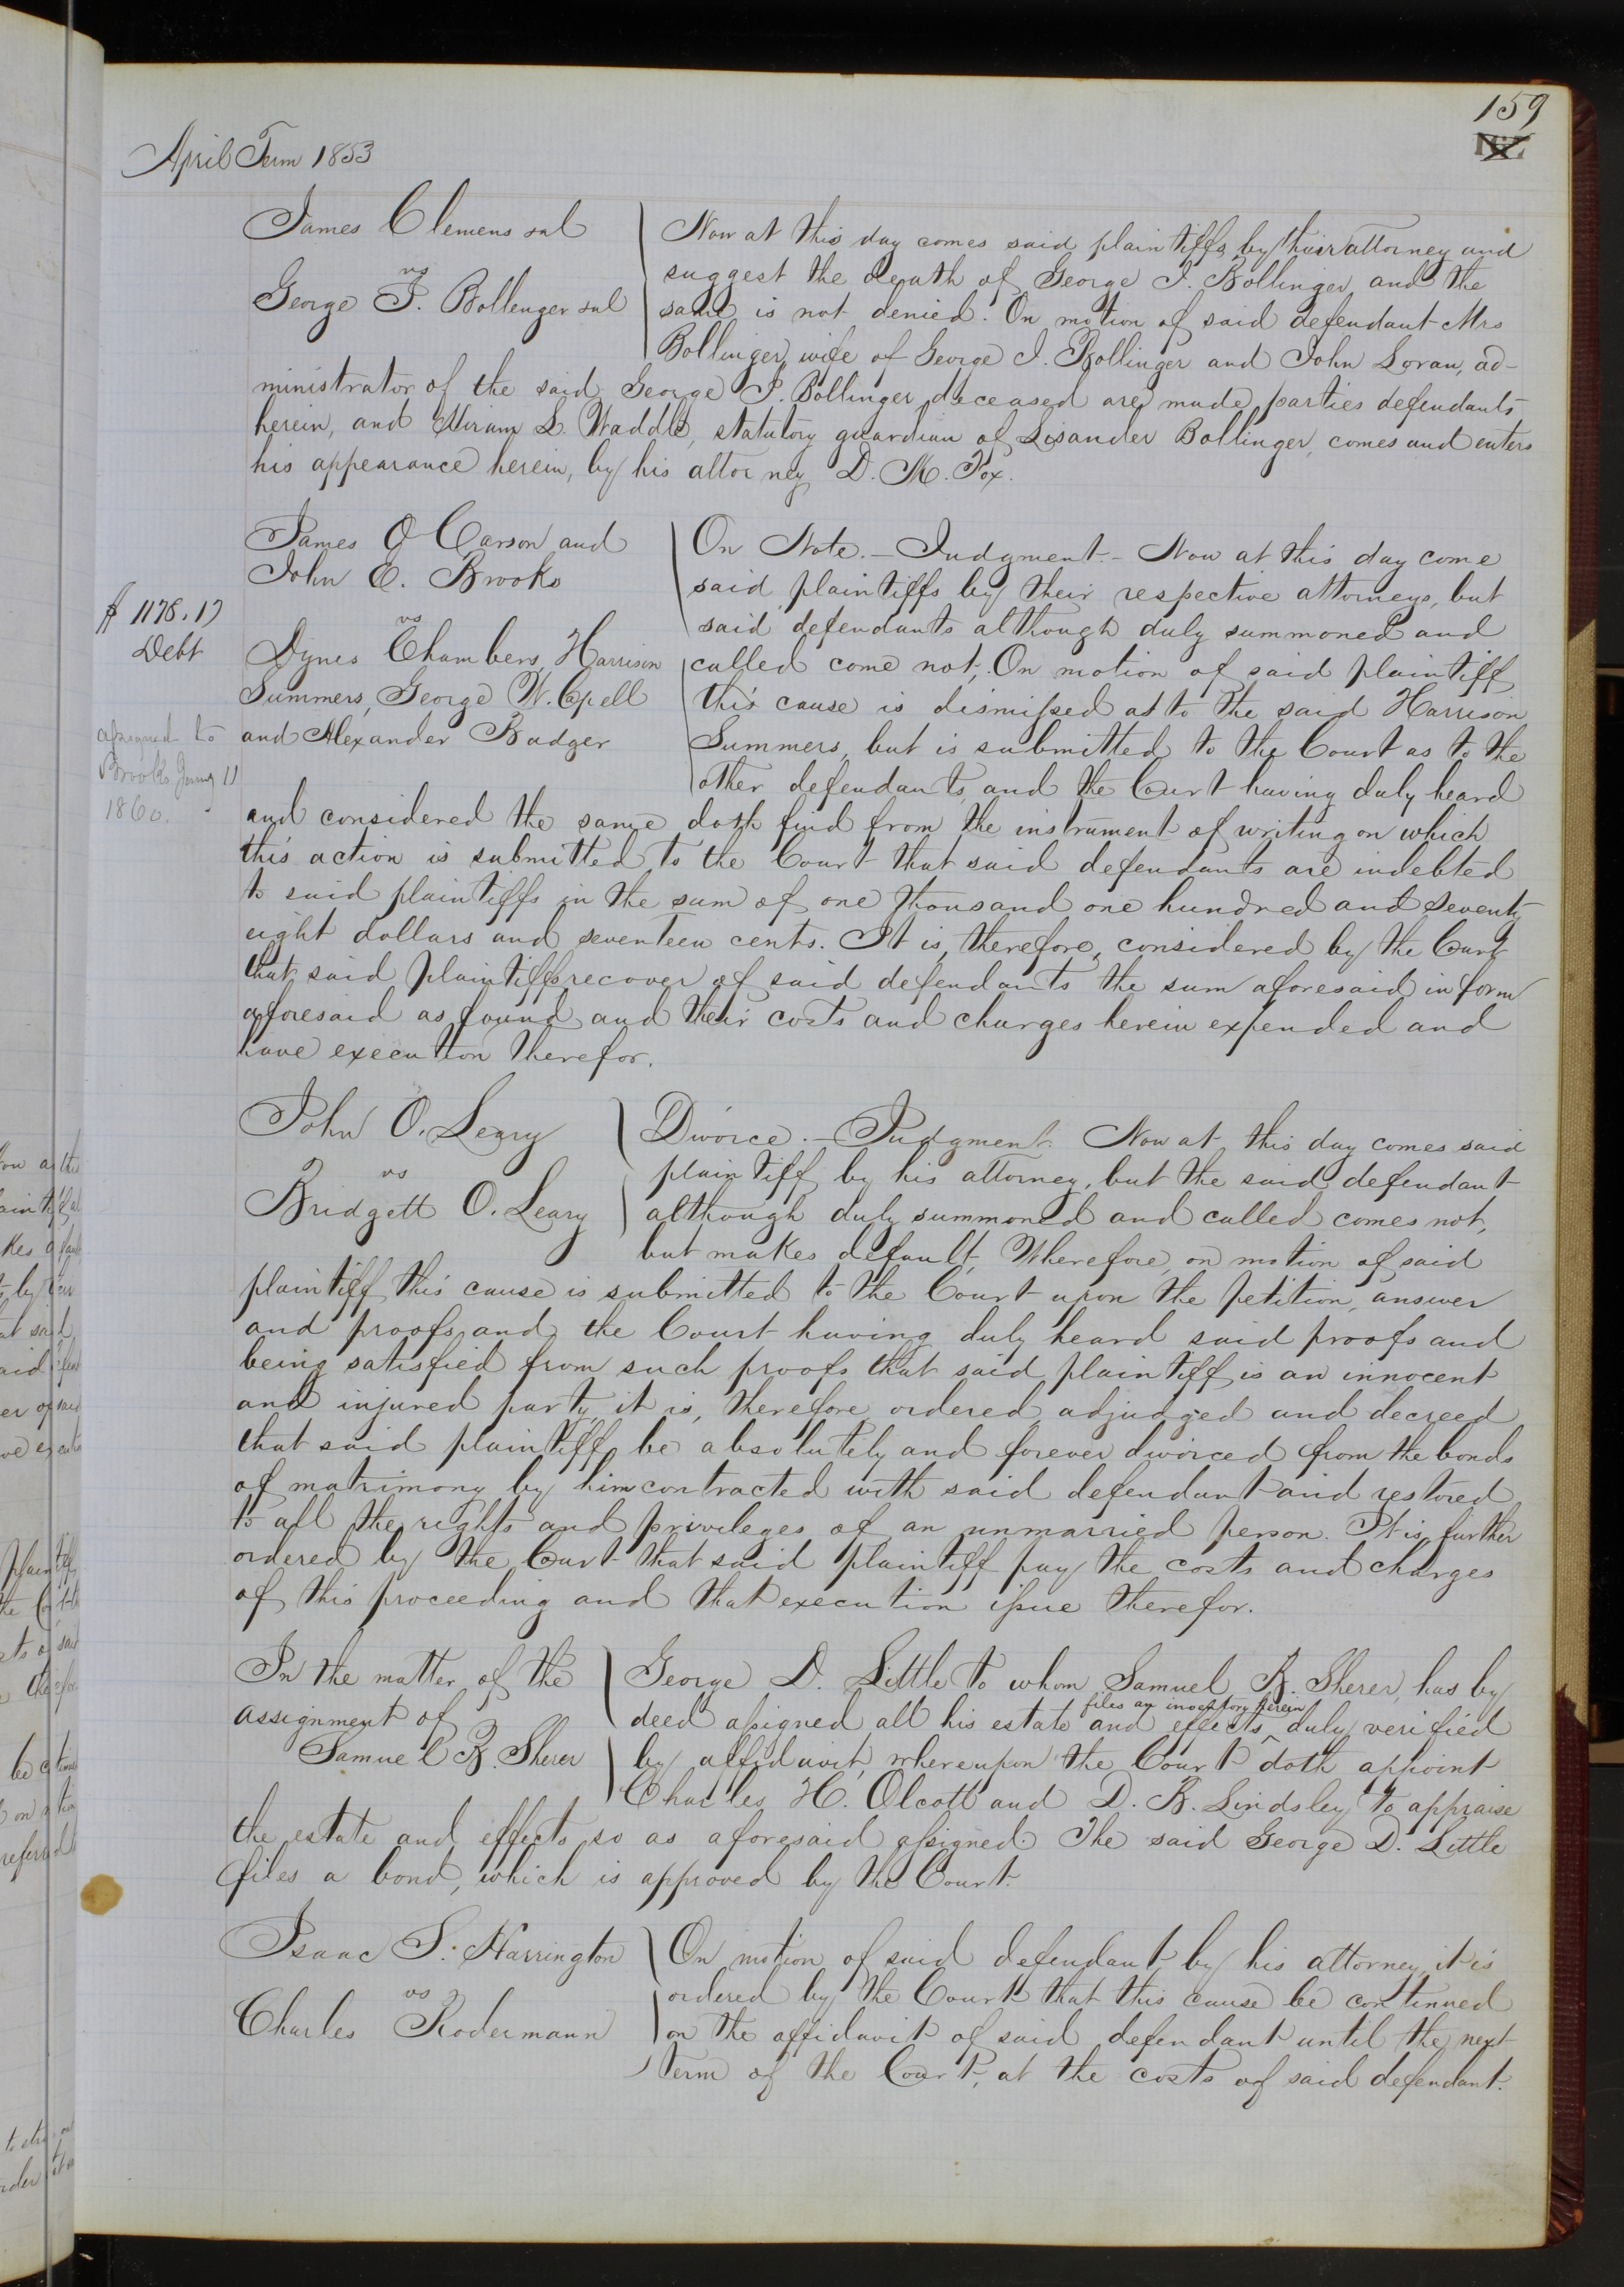 159
April Term 1853
James Clemens & al
vs
George I. Bollenger & al
Now at this day comes said plaintiffs by their attorney and
suggest the death of George I. Bollinger and the
same is not denied. On motion of said defendant Mrs
Bollinger, wife of George I. Bollinger and John Loran, ad-
ministrator of the said George I. Bollinger deceased are made parties defendants
herein, and Hiram L. Waddle, statutory guardian of Lisander Bollinger, comes and enters
his appearance herein, by his attorney D. M. Fox.
James O Carson and
John E. Brooks
vs
Dynes Chambers, Harrison
Summers, George W. Cpell
and Alexander Badger
$ 1178.17
Debt
assigned to
Brooks Jany 11
1860.
On Note. – Judgment. – Now at this day come
said plaintiffs by their respective attorneys, but
said defendants although duly summoned and
called come not. On motion of said plaintiff
this cause is dismissed as to the said Harrison
Summers, but is submitted to the Court as to the
other defendants, and the Court having duly heard
and considered the same doth find from the instrument of writing on which
this action is submitted to the Court that said defendants are indebted
to said plaintiffs in the sum of one thousand one hundred and seventy
eight dollars and seventeen cents. It is, therefore, considered by the Court
that said plaintiffs recover of said defendants the sum aforesaid in form
aforesaid as found and their costs and charges herein expended and
have execution therefor.
John O. Leary
vs
Bridgett O. Leary
Divorce. – Judgment. Now at this day comes said
plaintiff by his attorney, but the said defendant
although duly summoned and called comes not,
but makes default, Wherefore, on motion of said
plaintiff this cause is submitted to the Court upon the petition, answer
and proofs, and the Court having duly heard said proofs and
being satisfied from such proofs that said plaintiff is an innocent
and injured party, it is, therefore ordered, adjudged and decreed
that said plaintiff be absolutely and forever divorced from the bonds
of matrimony by him contracted with said defendant and restored
to all the rights and privileges of an unmarried person. It is further
ordered by the Court that said plaintiff pay the costs and charges
of this proceeding and that execution issue therefor.
In the matter of the
assignment of
Samuel B. Sherer
George D. Little to whom Samuel B. Sherer, has by
deed assigned all his estate and effects ^files an inventory herein duly verified
by affidavit, whereupon the Court doth appoint
Charles H. Olcott and D. B. Lindsley to appraise
the estate and effects so as aforesaid assigned. The said George D. Little
files a bond, which is approved by the Court.
Isaac S. Harrington
vs
Charles Rodermann
On motion of said defendant, by his attorney, it is
ordered by the Court that this cause be continued
on the affidavit of said defendant until the next
term of the Court, at the costs of said defendant.